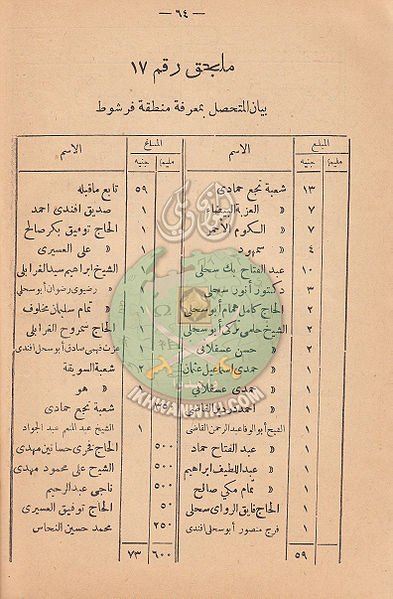 — ٦٤ —
ملحق رقم ١٧
بيان المتحصل بمعرفة منطقة فرشوط
المبلغ الاسم
مليم جنيه
١٣ شعبة نجع حمادى
٧ » العزبة البيضاء
٧ » الكوم الأحمر
٤ » سمهود
١٠ عبد الفتاح بك سحلى
٣ دكتور أنور سحلى
٢ الحاج كامل همام أبو سحلى
٢ الشيخ حامى تركى أبو سحلى
١ » حسن عسقلانى
١ » حمدى اسماعيل عثمان
١ » حمدى عسقلانى
١ » احمد دردير القاضى
١ الشيخ أبو الوفا عبد الرحمن القاضى
١ » عبد الفتاح حماد
١ » عبد اللطيف ابراهيم
١ » تمام مكي صالح
١ الحاج فايق الراوى سحلى
١ فرج منصور أبو سحلى افندى
٥٩
المبلغ الاسم
مليم جنيه
٥٩ تابع ماقبله
١ صديق افندى احمد
١ الحاج توفيق بكر صالح
١ » على العسيرى
الشيخ ابراهيم سيد الغرابلى
» رضوى رضوان أبو سحلى
١ » تمام سليمان مخلوف
الحاج ممدوح الغرابلى
عزت فهمى صادق أبو سحلى افندى
٢ شعبة السويقة
» هو
شعبة نجع حمادى
١ الشيخ عبد المنعم عبد الجواد
٥٠٠ الحاج فخرى حسانين مهدى
٥٠٠ الشيخ على محمود مهدى
٥٠٠ ناجى عبد الرحيم
الحاج توفيق العسيرى
٢٥٠ محمد حسين النحاس
٦٠٠ ٧٣
IKHWANWIKI.COM